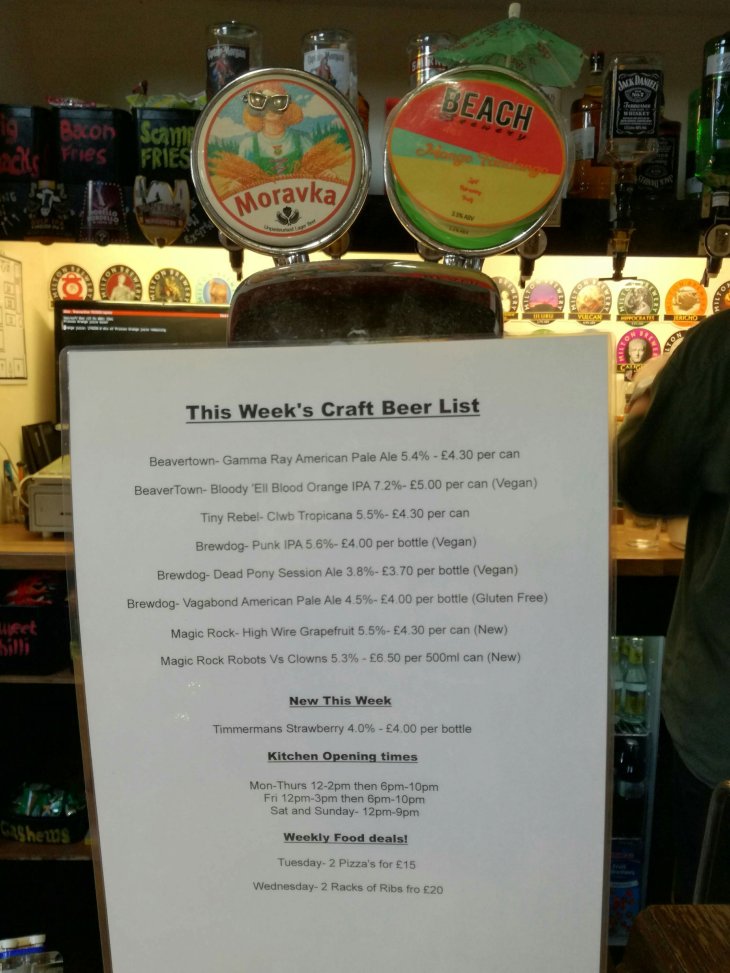 JACK DANIEL'S
Tennessee
WHISKEY
Bacon
FRIES
FRIES
Moravka
Unpasteurised Lager Beer
BEACH
Brewery
MILTON BREWERY
VULCAN
HIPPOCRATES
JERICHO
This Week's Craft Beer List
Beavertown- Gamma Ray American Pale Ale 5.4% - £4.30 per can
BeaverTown- Bloody 'Ell Blood Orange IPA 7.2%- £5.00 per can (Vegan)
Tiny Rebel- Clwb Tropicana 5.5%- £4.30 per can
Brewdog- Punk IPA 5.6%- £4.00 per bottle (Vegan)
Brewdog- Dead Pony Session Ale 3.8%- £3.70 per bottle (Vegan)
Brewdog- Vagabond American Pale Ale 4.5%- £4.00 per bottle (Gluten Free)
Magic Rock- High Wire Grapefruit 5.5%- £4.30 per can (New)
Magic Rock Robots Vs Clowns 5.3% - £6.50 per 500ml can (New)
New This Week
Timmermans Strawberry 4.0% - £4.00 per bottle
Kitchen Opening times
Mon-Thurs 12-2pm then 6pm-10pm
Fri 12pm-3pm then 6pm-10pm
Sat and Sunday- 12pm-9pm
Weekly Food deals!
Tuesday- 2 Pizza's for £15
Wednesday- 2 Racks of Ribs fro £20
Cashews